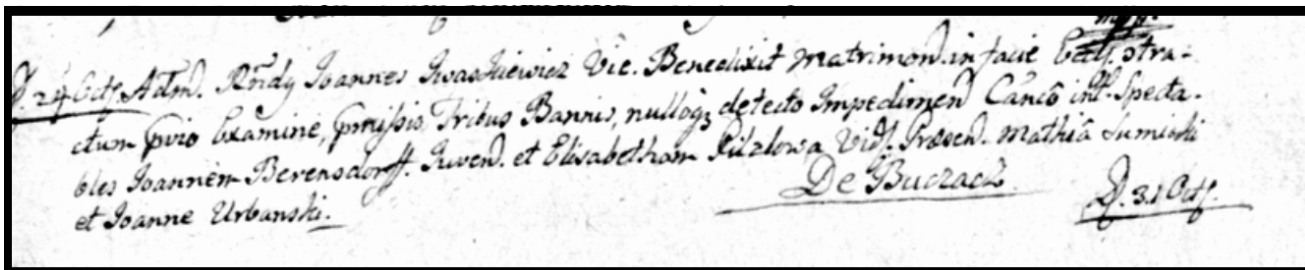 D. 24 Octb. Adm. Rndy Joannes Iwaszkiewicz Vic. Benedixit Matrimon. in facie Eccl. Stra-
ctum pvio Examine, pmissis Tribus Bannis, nulloqz detecto Impedimen Canco int. Specta-
bles Joannem Berensdorff. Juven. et Elisabetham Pilzlowa Vid. Præsen. Mathia Lumiński
et Joanne Urbanski.
De Buczacz
D. 31 Octb.